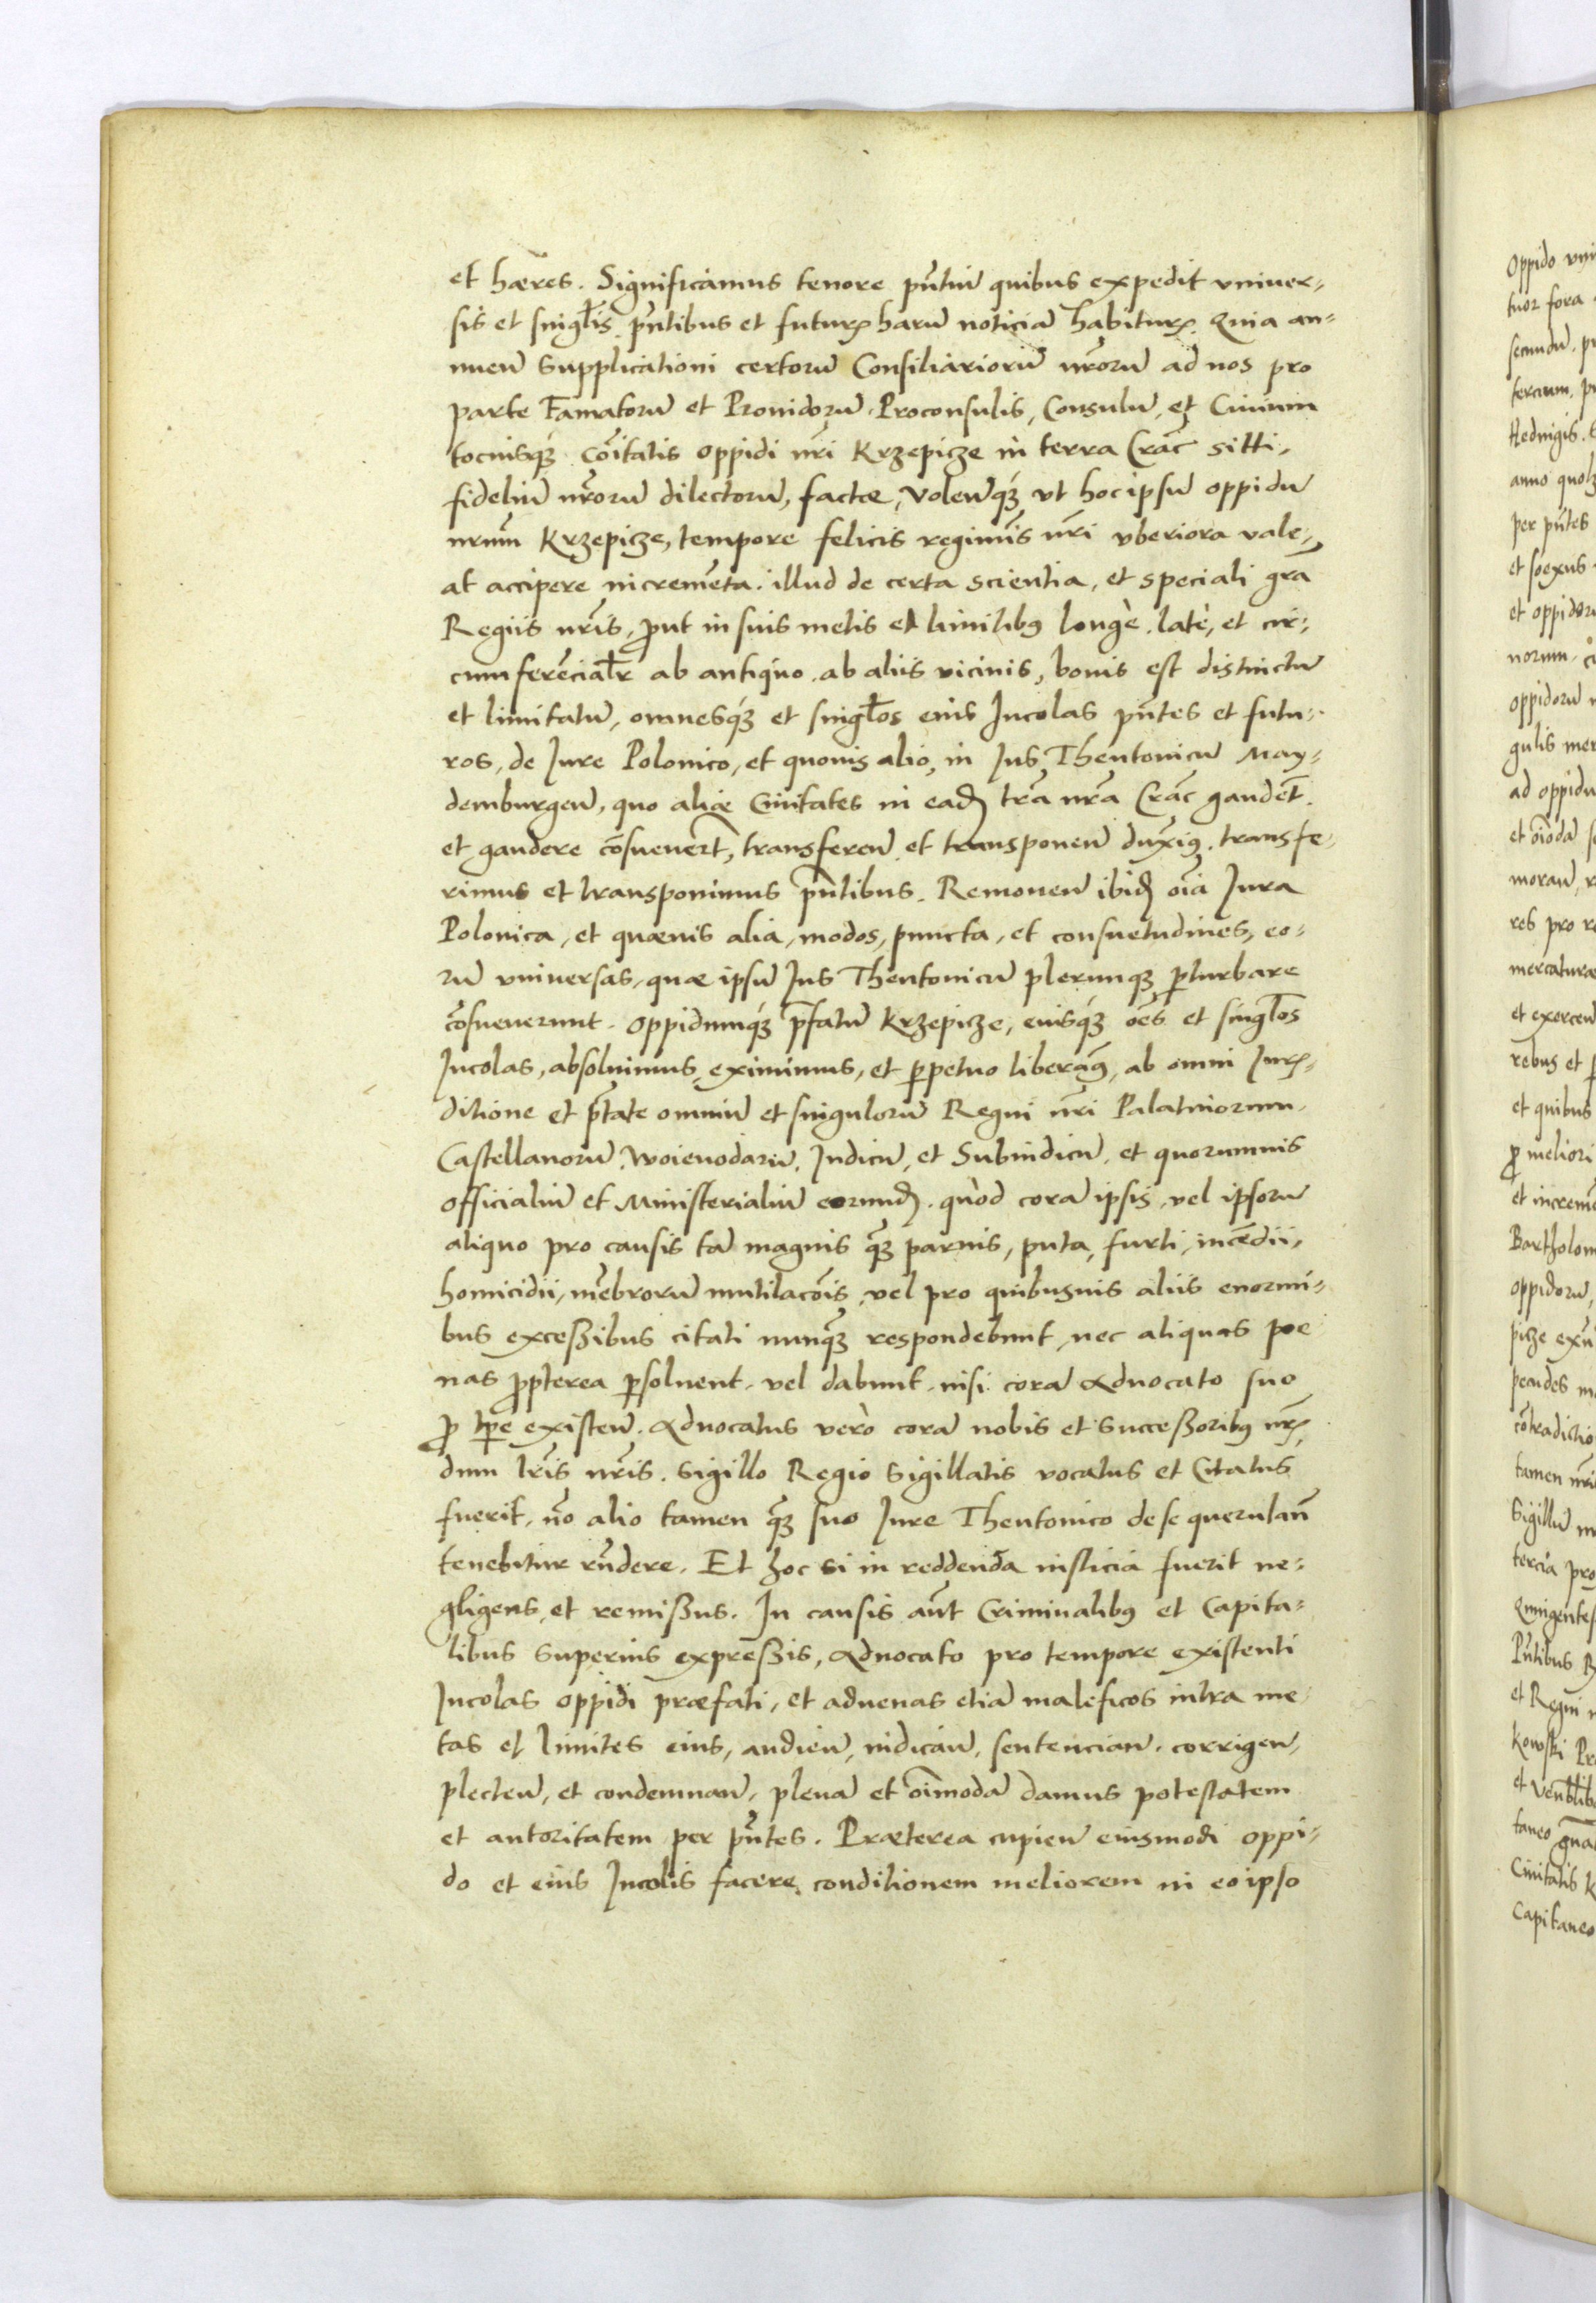 et hæres. Significamus tenore pñtiũ quibus expedit vniuer-
sis et singlis pñtibus et futurꝭ harũ noticiã habiturꝭ. Quia an-
nueñ supplicationi certorũ Consiliariorũ nrõrũ ad nos pro
parte Famatorũ et Prouidorũ, Proconsulis, Consulũ, et Ciuium
tociusqꝫ Cõitatis oppidi nr̃i Krzepicze in terra Crac̃ sitti,
fideliũ nr̃orũ dilectorũ, factæ, voleñqꝫ vt hoc ipsũ oppidũ
nrũm Krzepicze, tempore felicis regiminis nr̃i vberiora vale-
at accipere incremẽta. illud de certa scientia, et speciali gra
Regiis nr̃is, ꝓut in suis metis et limitibꝰ longè, latè, et cir-
cumferẽcialr̃ ab antiquo ab aliis vicinis, bonis est distinctũ
et limitatũ, omnesqꝫ et singłos eius Incolas pñtes et futu-
ros, de Iure Polonico, et quouis alio, in Ius Theutonicũ May-
demburgeñ, quo aliæ Ciuitates in eadꝫ tr̃a nr̃a Crac̃ gaudẽt.
et gaudere cõsueuer̃t, transfereñ et transponeñ duximꝰ. transfe-
rimus et transponimus pñtibus. Remoueñ ibidꝫ oĩa Iura
Polonica, et quæuis alia, modos, puncta, et consuetudines, eo-
rũ vniuersas, quæ ipsũ Ius Theutonicũ plerunqꝫ ꝑturbare
cõsueuerunt. Oppidumqꝫ p̃fatũ Krzepicze, eiusqꝫ oẽs et singłos
Incolas, absoluimus, eximimus, et ꝑpetuo liberamꝰ, ab omni Iurꝭ-
ditione et p̃tate omniũ et singulorũ Regni nr̃i Palatinorum,
Castellanorũ, Woieuodarũ, Iudicũ, et Subiudicũ, et quorumuis
officialiũ et Ministerialiũ eorundꝫ. quòd corã ipsis, vel ipsorũ
aliquo pro causis tã magnis qꝫ paruis, puta, furti, incẽdii,
homicidii, mẽbrorũ mutilacõis, vel pro quibusuis aliis enormi-
bus exceßibus citati nunqꝫ respondebunt, nec aliquas poe
nas ꝓpterea ꝑsoluent, vel dabunt, nisi corã Aduocato suo
ꝓ tp̃e existeñ. Aduocatus verò corã nobis et Succeßoribꝰ nr̃ꝭ
dum lr̃is nr̃is. Sigillo Regio Sigillatis vocatus et Citatus
fuerit, nõ alio tamen qꝫ suo Iure Theutonico de se querulañ
tenebitur rñdere. Et hoc si in reddenda iusticia fuerit ne-
gligens et remißus. In causis aũt Criminalibꝰ et Capita-
libus superius expreßis, Aduocato pro tempore existenti
Incolas oppidi præfati, et aduenas etiã maleficos intra me
tas et limites eius, audieñ, iudicañ, sentencian. corrigeñ,
plecteñ, et condemnañ, plenã et oĩmodã damus potestatem
et autoritatem per pñtes. Præterea cupieñ eiusmodi oppi-
do et eius Incolis facere conditionem meliorem in eo ipso